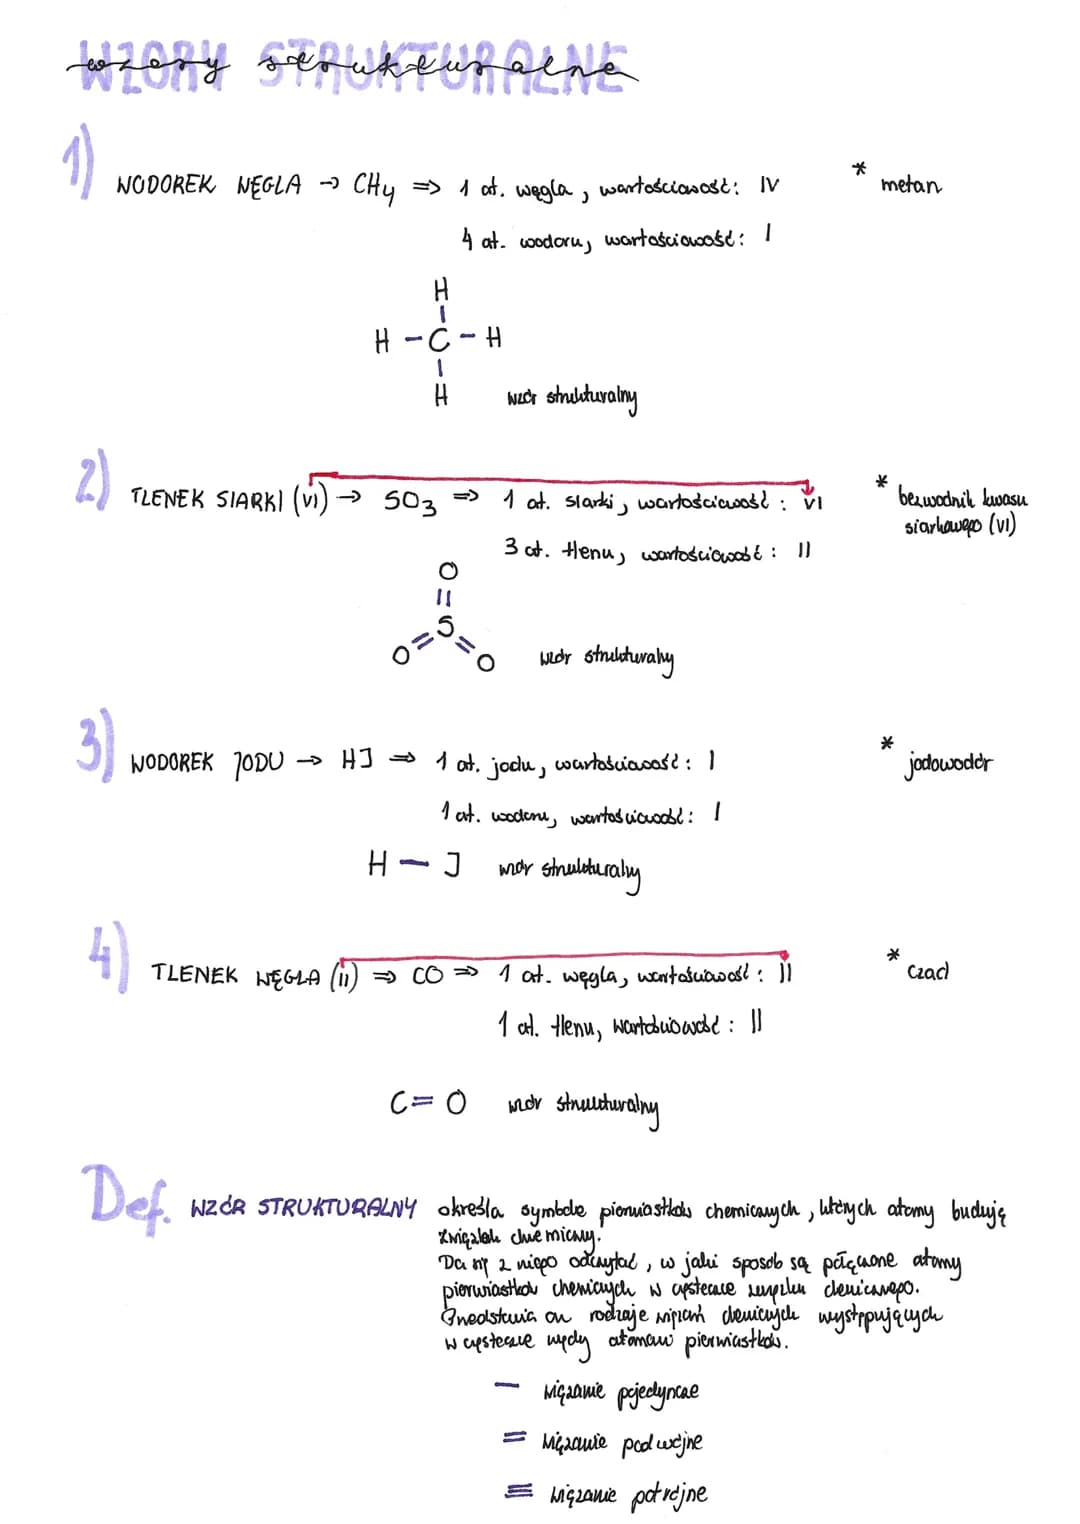 WZORY STRUKTURALNE
wzory strukturalne
1)
WODOREK WĘGLA → CH4 => 1 at. węgla, wartościowość: IV * metan
4 at. wodoru, wartościowość: I
H
|
H - C - H
|
H
wzór strukturalny
2)
TLENEK SIARKI (VI) → SO3 => 1 at. siarki, wartościowość: VI * bezwodnik kwasu
siarkowego (VI)
3 at. tlenu, wartościowość: II
O
||
S
O = = O
wzór strukturalny
3)
WODOREK JODU → HJ => 1 at. jodu, wartościowość: I * jodowodór
1 at. wodoru, wartościowość: I
H — J wzór strukturalny
4)
TLENEK WĘGLA (II) => CO => 1 at. węgla, wartościowość: II * czad
1 at. tlenu, wartościowość: II
C = O wzór strukturalny
Def. WZÓR STRUKTURALNY określa symbole pierwiastków chemicznych, których atomy budują
związek chemiczny.
Da się z niego odczytać, w jaki sposób są połączone atomy
pierwiastków chemicznych w cząsteczce związku chemicznego.
Przedstawia on rodzaje wiązań chemicznych występujących
w cząsteczce między atomami pierwiastków.
— wiązanie pojedyncze
= wiązanie podwójne
≡ wiązanie potrójne